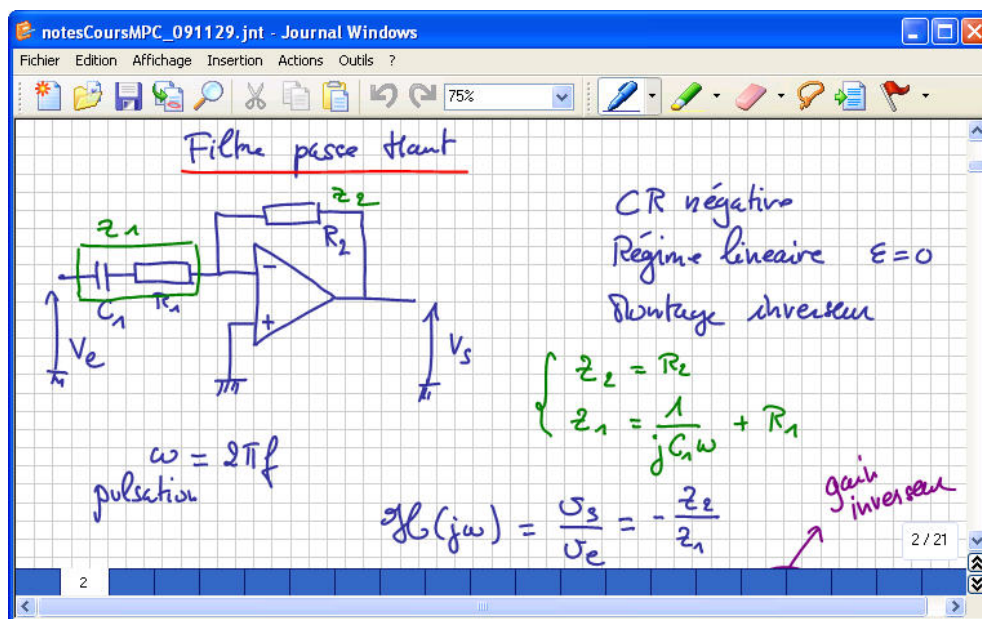 notesCoursMPC_091129.jnt - Journal Windows
Fichier Edition Affichage Insertion Actions Outils ?
75%
Filtre passe Haut
Z2
R2
Z1
C1 R1
Ve
-
+
Vs
CR négative
Régime lineaire ε=0
Montage inverseur
Z2 = R2
Z1 = 1/(jC1ω) + R1
ω = 2πf
pulsation
H(jω) = vs/ve = - Z2/Z1
gain
inverseur
2 / 21
2